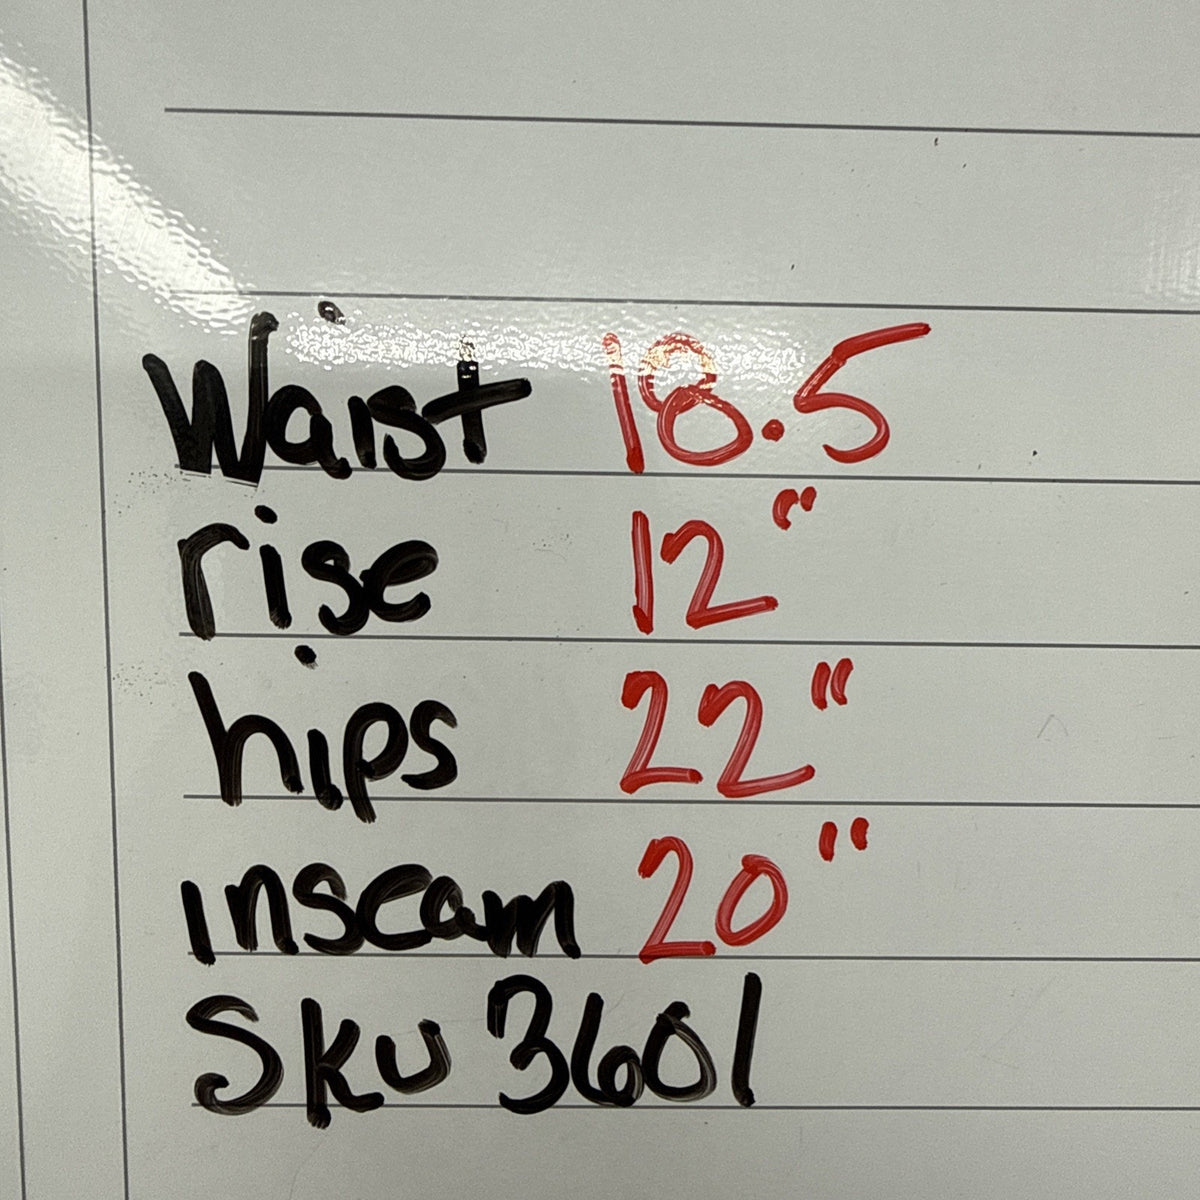 Waist 18.5
rise 12"
hips 22"
inseam 20"
Sku 3601